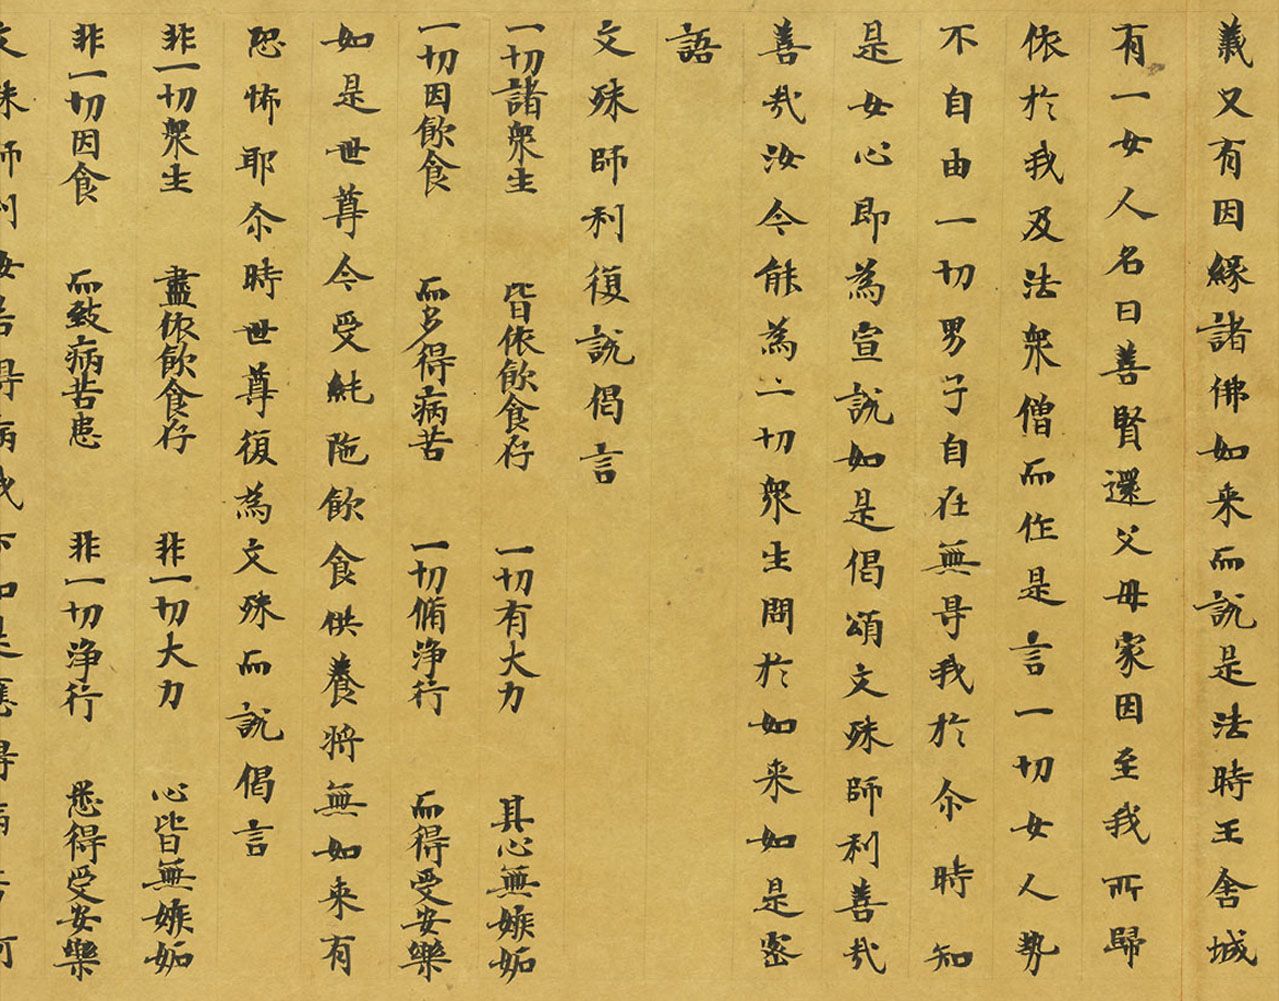 義又有因緣諸佛如来而說是法時王舍城
有一女人名曰善賢還父母家因至我所歸
依於我及法衆僧而作是言一切女人勢
不自由一切男子自在無㝵我於尒時知
是女心即為宣說如是偈頌文殊師利善㢤
善㢤汝今能為一切衆生問於如来如是密
語
文殊師利復說偈言
一切諸衆生 皆依飲食存 一切有大力 其心無嫉妬
一切因飲食 而多得病苦 一切脩淨行 而得受安樂
如是世尊今受純陁飲食供養将無如来有
恐怖耶尒時世尊復為文殊而說偈言
非一切衆生 盡依飲食存 非一切大力 心皆無嫉妬
非一切因食 而致病苦患 非一切淨行 悉得受安樂
文殊師利汝若得病我